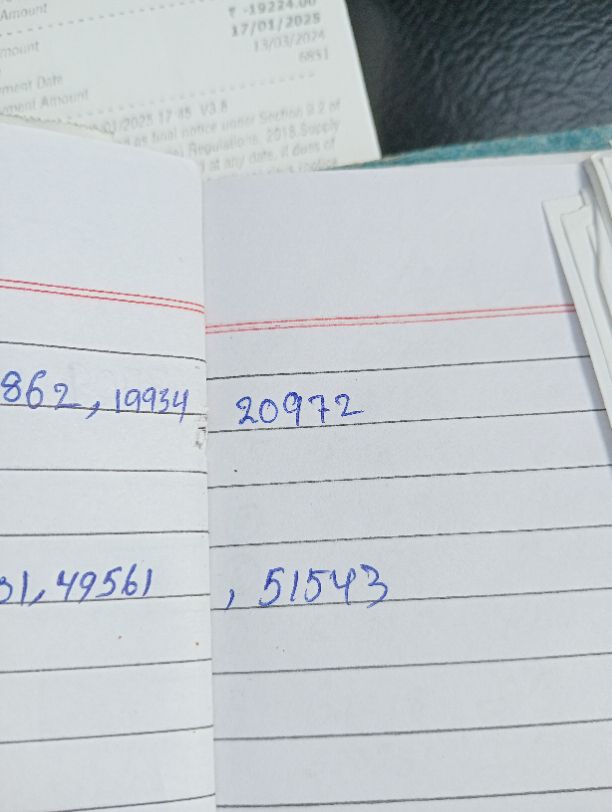 Amount ₹ -19224.00
17/01/2025
mount 13/03/2024
6851
ment Date
ment Amount
/2025 17:45 V3.8
as final notice under Section 9.2 of
Regulations, 2018. Supply
at any date, if dues of
862, 19934 20972
31, 49561 , 51543